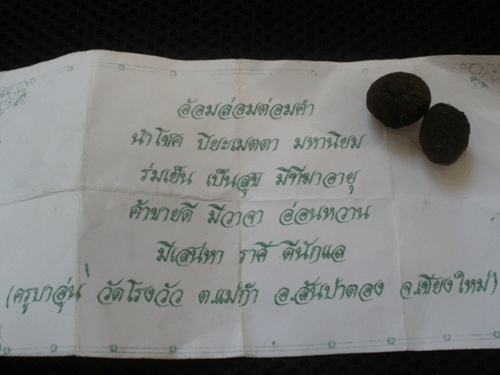 อ้อมล่อมต่อมคำ
นำโชค ปิยะเมตตา มหานิยม
ร่มเย็น เป็นสุข มีทีฆาอายุ
ค้าขายดี มีวาจา อ่อนหวาน
มีเสน่หา ราศี ดีนักแล
(ครูบาอุ่น วัดโรงวัว ต.แม่ก๊า อ.สันป่าตอง จ.เชียงใหม่)